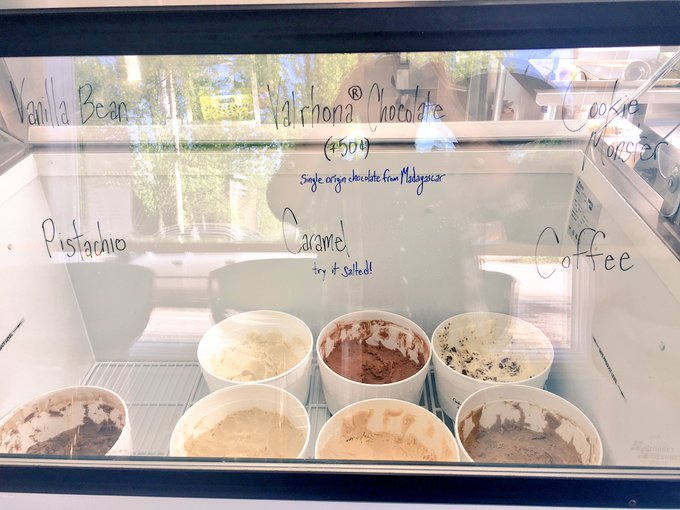 Vanilla Bean
Valrhona® Chocolate
(+50¢)
Single origin chocolate from Madagascar
Cookie
Monster
Pistachio
Caramel
try it salted!
Coffee